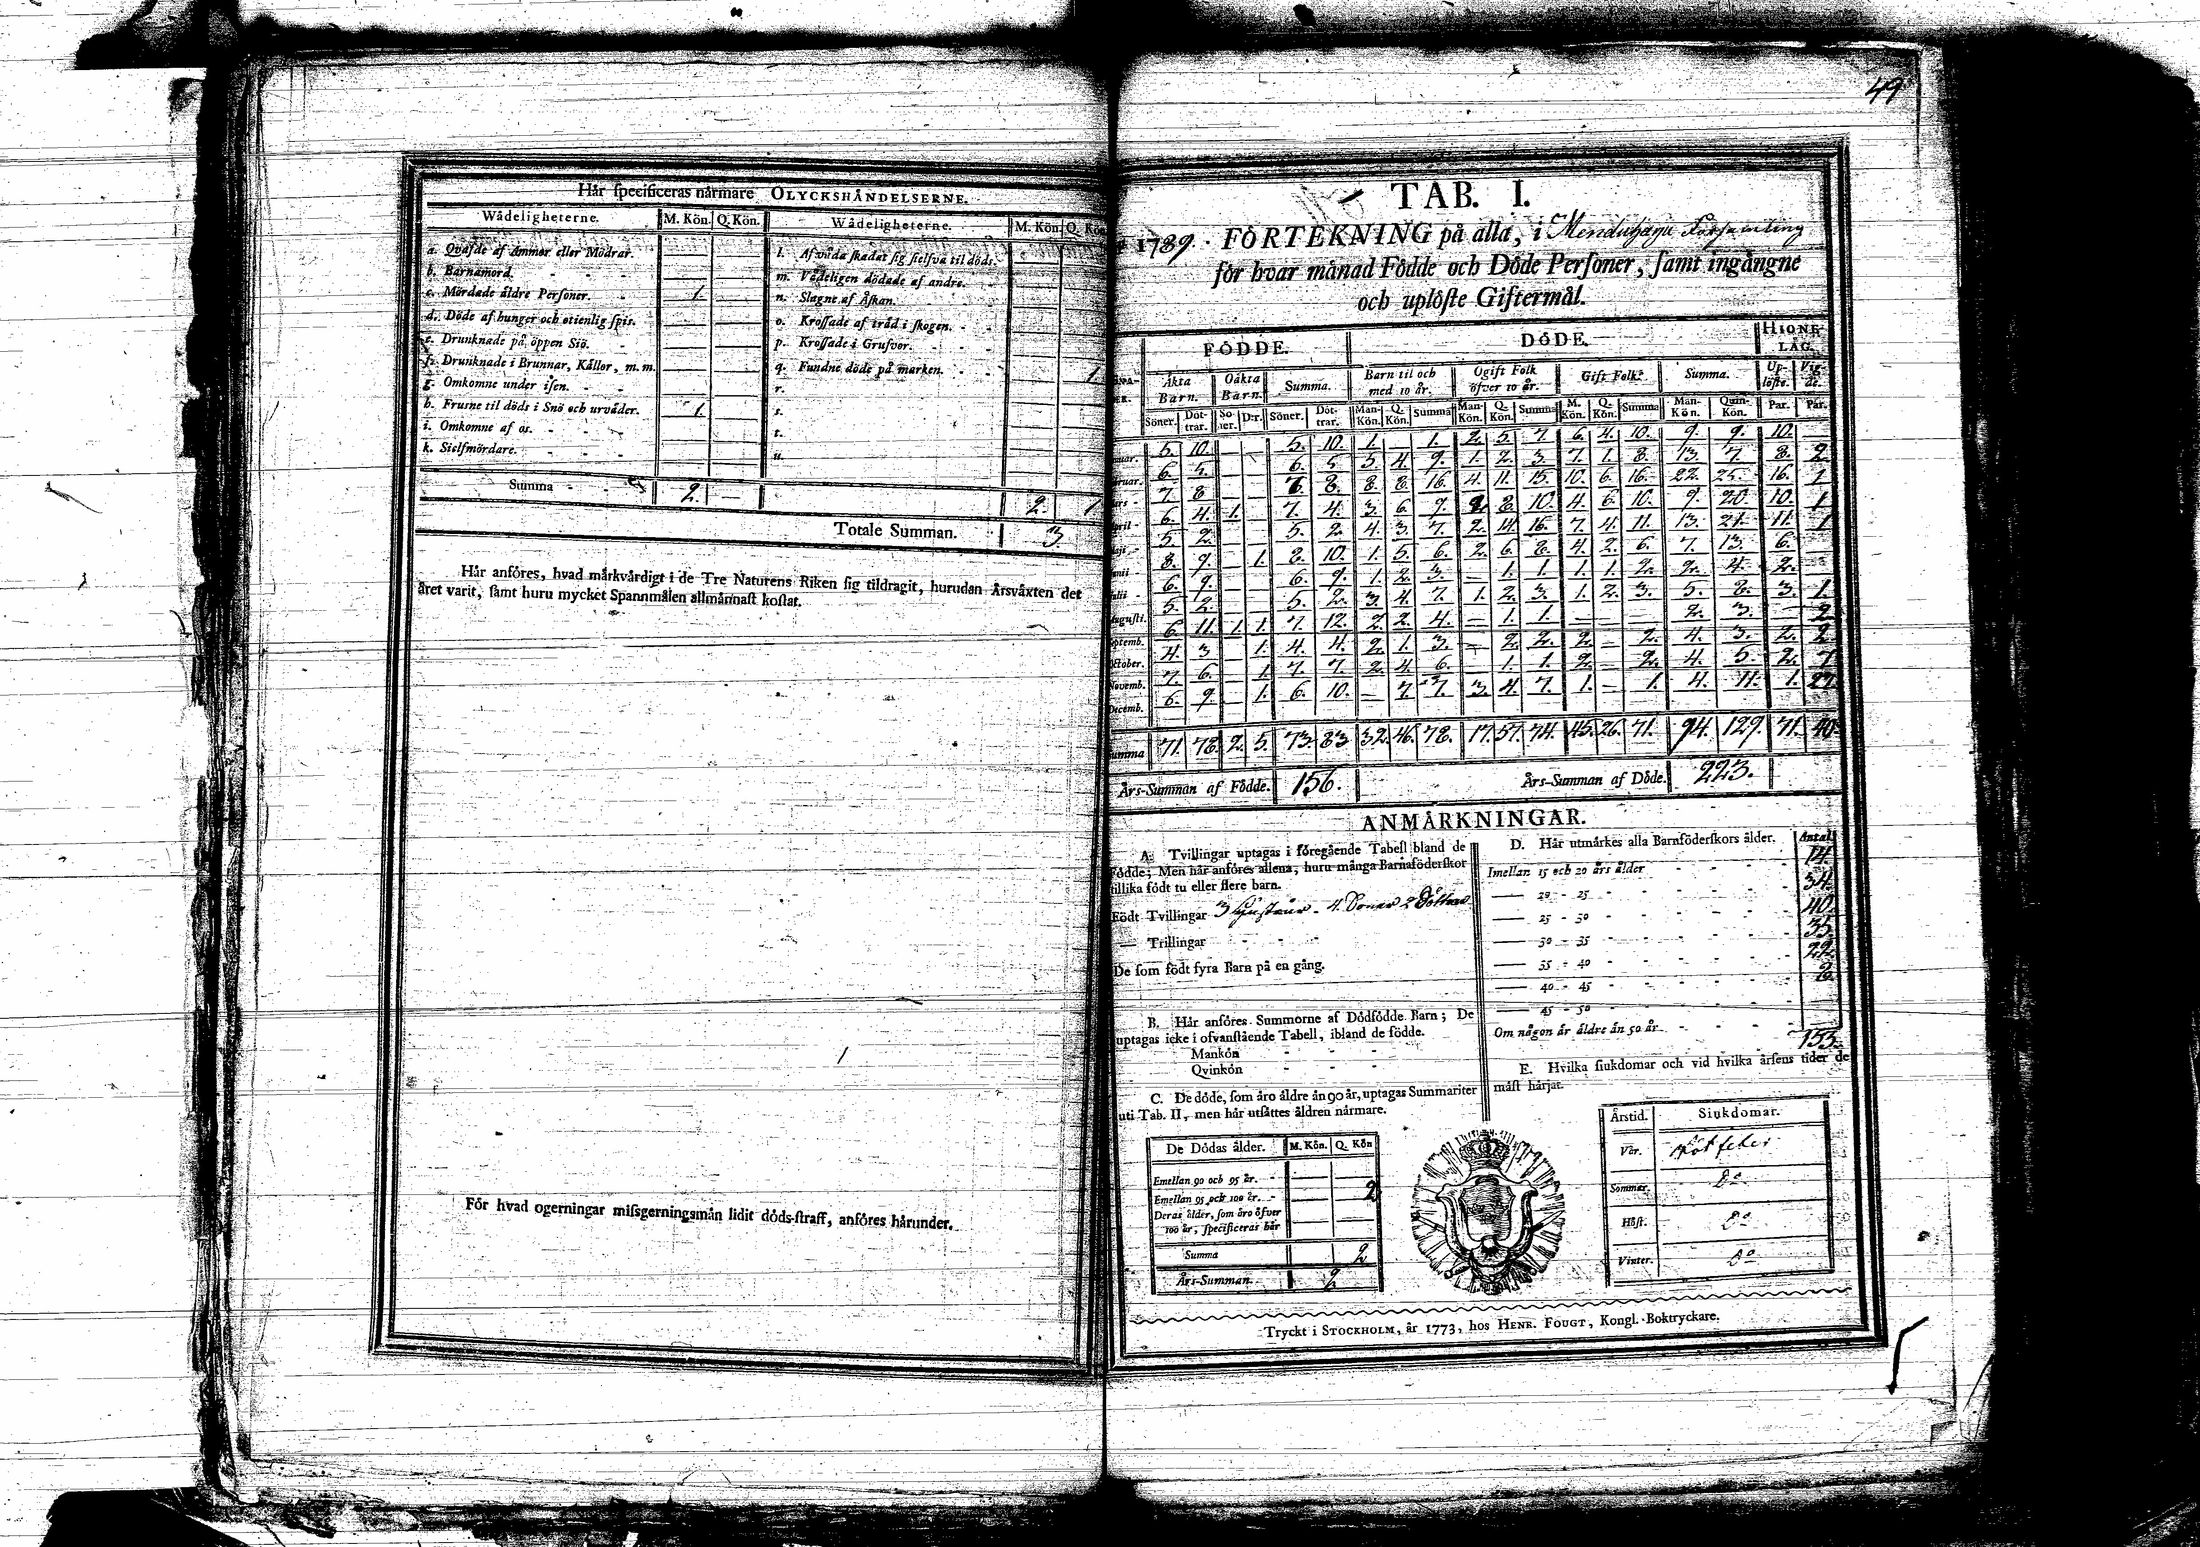 49
Hår specificeras nårmare OLYCKSHÅNDELSERNE.
Wådeligheterne. M. Kön. Q. Kön. Wådeligheterne. M. Kön. Q. Kön.
a. Qvafde af Ammor eller Mödrar. — —
b. Barnamord. — —
c. Mördade åldre Personer. 1. —
d. Döde af hunger och otienlig spis. — —
e. Drunknade på öppen Siö. — —
f. Drunknade i Brunnar, Kållor, m. m. — —
g. Omkomne under isen. — —
h. Frusne til döds i Snö och urvåder. 1. —
i. Omkomne af os. — —
k. Sielfmördare. — —
l. Af våda skadat sig sielfva til döds.
m. Vådeligen dödade af andre.
n. Slagne af Åskan.
o. Krossade af tråd i skogen.
p. Krossade i Grufvor.
q. Fundne döde på marken. 1
r.
s.
t.
u.
Summa 2. — 2. 1
Totale Summan. 3.
Hår anföres, hvad mårkvårdigt i de Tre Naturens Riken sig tildragit, hurudan Årsvåxten det
året varit, samt huru mycket Spannmålen allmånnast kostat.
För hvad ogerningar missgerningsmån lidit döds-straff, anföres hårunder.
TAB. I.
1789. FÖRTEKNING på alla, i Församling
för hvar månad Födde och Döde Personer, samt ingångne
och uplöste Giftermål.
FÖDDE. DÖDE. HIONE-LAG.
Åkta Barn. Oåkta Barn. Summa. Barn til och med 10 år. Ogift Folk öfver 10 år. Gift Folk. Summa. Up-löste. Vig-de.
Söner. Döt-trar. So-ner. D:r. Söner. Döt-trar. Man-Kön. Q. Kön. Summa Man-Kön. Q. Kön. Summa M. Kön. Q. Kön. Summa Man-Kön. Quin-Kön. Par. Par.
5. 10. — — 5. 10. 1. 1. 2. 5. 7. 6. 4. 10. 9. 9. 10. —
6. 5. — — 6. 5. 5. 4. 9. 1. 2. 3. 7. 1. 8. 13. 7. 8. 2
7. 8 — — 7. 8. 8. 8. 16. 4. 11. 15. 10. 6. 16. 22. 25. 16. 1
6. 4. 1. — 7. 4. 3. 6. 9. 2. 8. 10. 4. 6. 10. 9. 20. 10. 1
5. 2. — — 5. 2. 4. 3. 7. 2. 14. 16. 7. 4. 11. 13. 21. 11. 1
8. 9. — 1. 8. 10. 1. 5. 6. 2. 6. 8. 4. 2. 6. 7. 13. 6. —
6. 9. — — 6. 9. 1. 2. 3. — 1. 1. 1. 1. 2. 2. 4. 2. —
5. 2. — — 5. 2. 3. 4. 7. 1. 2. 3. 1. 2. 3. 5. 8. 3. 1.
6. 11. 1. 1. 7. 12. 2. 2. 4. — 1. 1. — — — 2. 3. — 2.
4. 3 — 1. 4. 4. 2. 1. 3. — 2. 2. 2. — 2. 4. 3. 2. 2.
7. 6. — 1. 7. 7. 2. 4. 6. — 1. 1. 2. — 2. 4. 5. 2. 7
6. 9. — 1. 6. 10. — 7. 7. 3. 4. 7. 1. — 1. 4. 11. 1. 23.
Summa 71. 78. 2. 5. 73. 83 32. 46. 78. 17. 57. 74. 45. 26. 71. 94. 129. 71. 40.
Års-Summan af Födde. 156. Års-Summan af Döde. 223.
ANMÅRKNINGAR.
A. Tvillingar uptagas i föregående Tabell bland de
Födde; Men hår anföres allena, huru många Barnaföderskor
tillika födt tu eller flere barn.
Födt Tvillingar 3 4. Söner 2 Döttrar
— Trillingar
De som födt fyra Barn på en gång.
B. Hår anföres Summorne af Dödfödde Barn; De
uptagas icke i ofvanstående Tabell, ibland de födde.
Mankön
Qvinkön
C. De döde, som åro åldre ån 90 år, uptagas Summariter
uti Tab. II, men hår utsåttes åldren nårmare.
De Dödas ålder. M. Kön. Q. Kön
Emellan 90 och 95 år. — —
Emellan 95 och 100 år. — 2
Deras ålder, som åro öfver
100 år, specificeras hår — —
Summa 2
Års-Summan. 2
D. Hår utmårkes alla Barnföderskors ålder. Antal
Imellan 15 och 20 års ålder 14.
— 20 - 25 34.
— 25 - 30 40.
— 30 - 35 35.
— 35 - 40 22.
— 40 - 45 8.
— 45 - 50
Om någon år åldre ån 50 år
153.
E. Hvilka siukdomar och vid hvilka årsens tider de
måst hårjat.
Årstid. Siukdomar.
Vår. Rötfeber
Sommar. Do
Höst. Do
Vinter. Do
Tryckt i STOCKHOLM, år 1773, hos HENR. FOUGT, Kongl. Boktryckare.